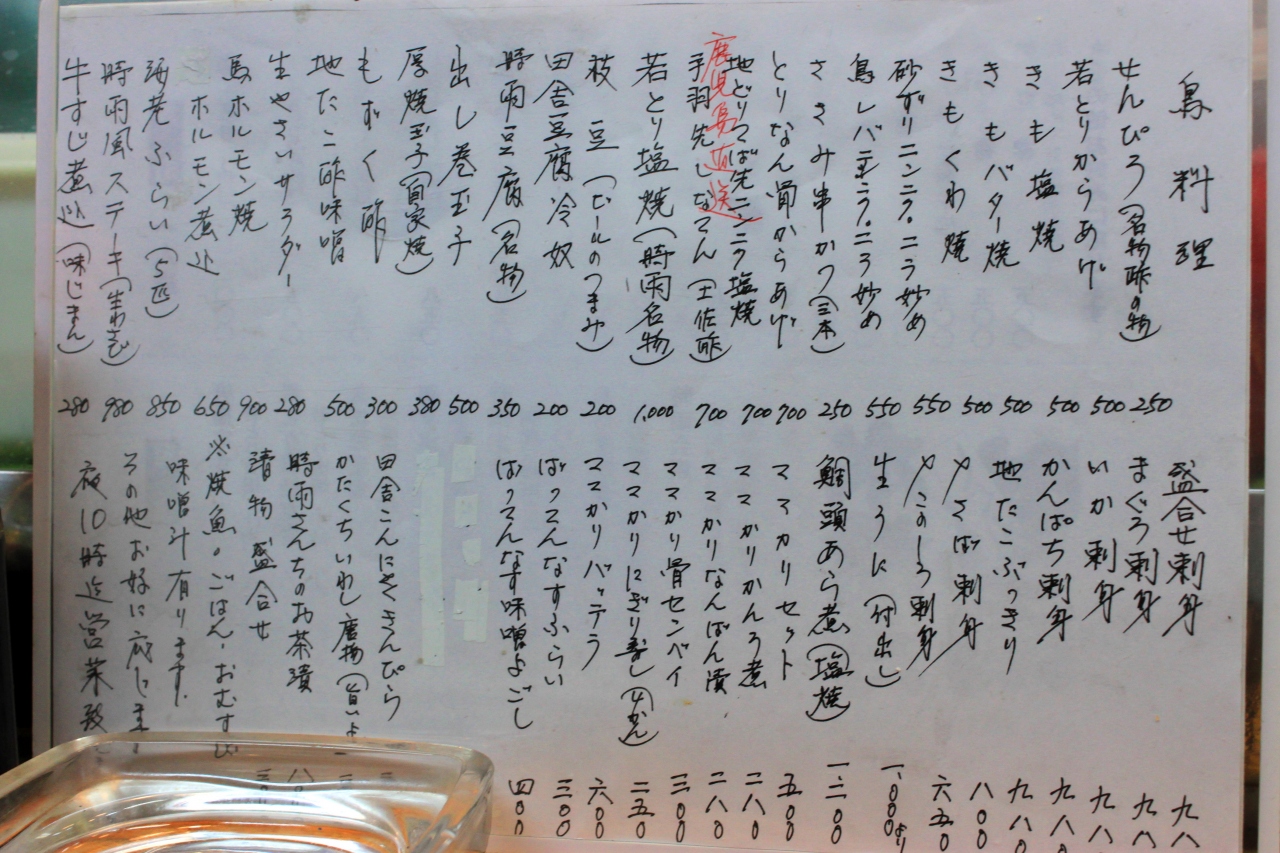 鳥料理
せんぴろ(名物酢の物) 250
若とりからあげ 500
きも塩焼 500
きもバター焼 500
きもくわ焼 500
砂ずりニンニク・こう炒め 550
鳥レバニラ・ 炒め 550
ささみ串かつ(三本) 250
とりなん骨からあげ 700
鹿児島直送
地どりてば先ニンニク塩焼 700
手羽先しな てん(土佐酢) 700
若とり塩焼(時雨名物) 1,000
枝豆(ビールのつまみ) 200
田舎豆腐冷奴 200
時雨豆腐(名物) 350
出し巻玉子 500
厚焼玉子(自家焼) 380
もずく酢 300
地たこ酢味噌 500
生やさいサラダー 280
馬ホルモン焼 900
ホルモン煮込 650
海老ふらい(5匹) 850
時雨風ステーキ(生わさび) 980
牛すじ煮込(味じまん) 280
盛合せ刺身 九八
まぐろ刺身 九八
いか刺身 九八
かんぱち刺身 九八〇
地たこぶつきり 九八〇
〆さば刺身 八〇〇
〆このしろ刺身 六五〇
生うに(付出し) 一、〇〇〇より
鯛頭あら煮(塩焼) 一、二〇〇
ママカリセット 五〇〇
ママかりかんろ煮 二八〇
ママかりなんばん漬 二八〇
ママかり骨センベイ 三〇〇
ママかりにぎり寿し(4かん) 二五〇
ママかりバッテラ 六〇〇
ばってんなすふらい 三〇〇
ばってんなす味噌よごし 四〇〇
田舎こんにゃくきんぴら
かたくちいわし唐揚(旨いよ
時雨さんちのお茶漬
漬物盛合せ
※焼魚。ごはん・おむすび
味噌汁有ります。
その他お好に応じま
夜10時迄営業致